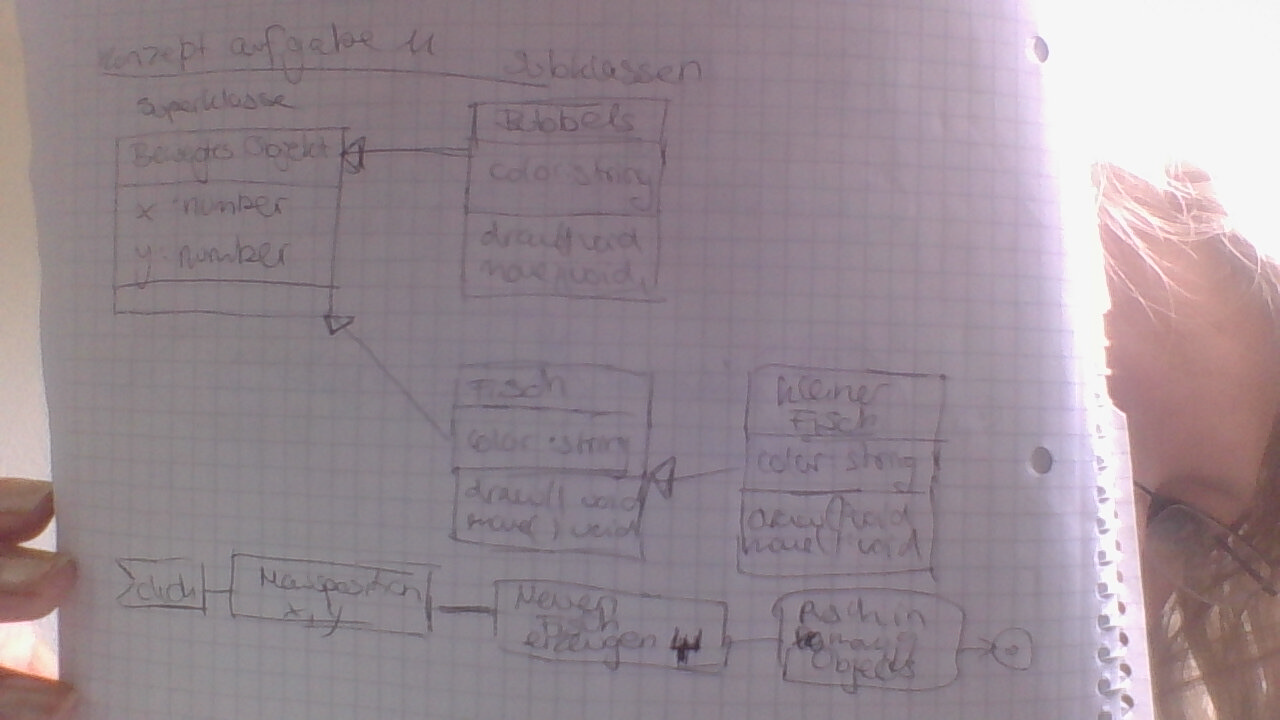 Konzept aufgabe 11
Subklassen
Superklasse
Bewegtes Objekt
x: number
y: number
Bubbels
color: string
draw() void
move() void
Fisch
color: string
draw() void
move() void
kleiner
Fisch
color: string
draw() void
move() void
click
Mausposition
x, y
Neuen
Fisch
erzeugen
Push in
Objects